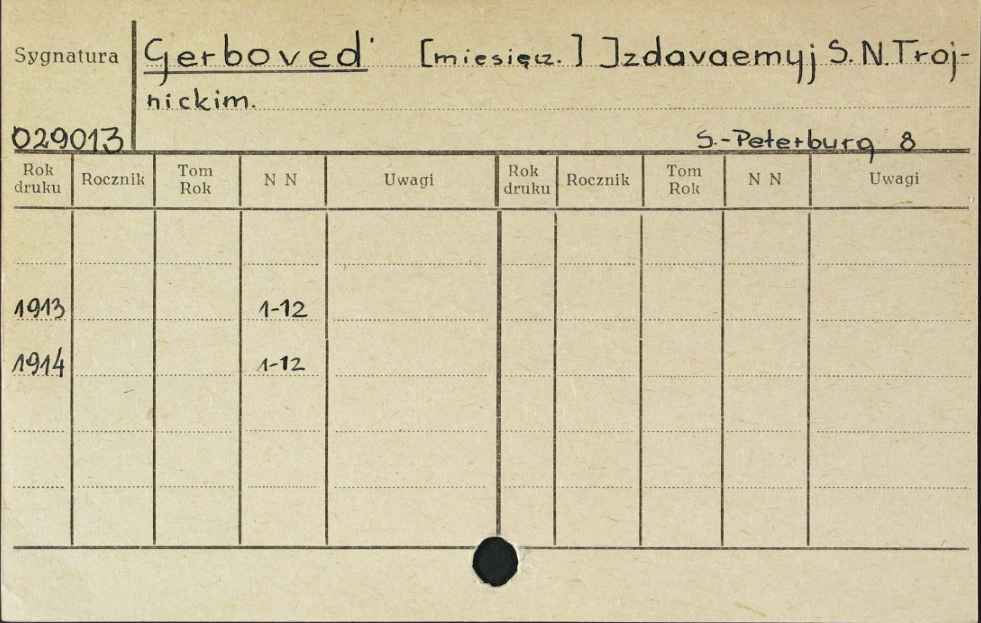 Sygnatura
Gerboved' [miesięcz.] Izdavaemyj S. N. Troj-
nickim.
029013
S.-Peterburg 8
Rok druku Rocznik Tom Rok N N Uwagi Rok druku Rocznik Tom Rok N N Uwagi
1913 1-12
1914 1-12